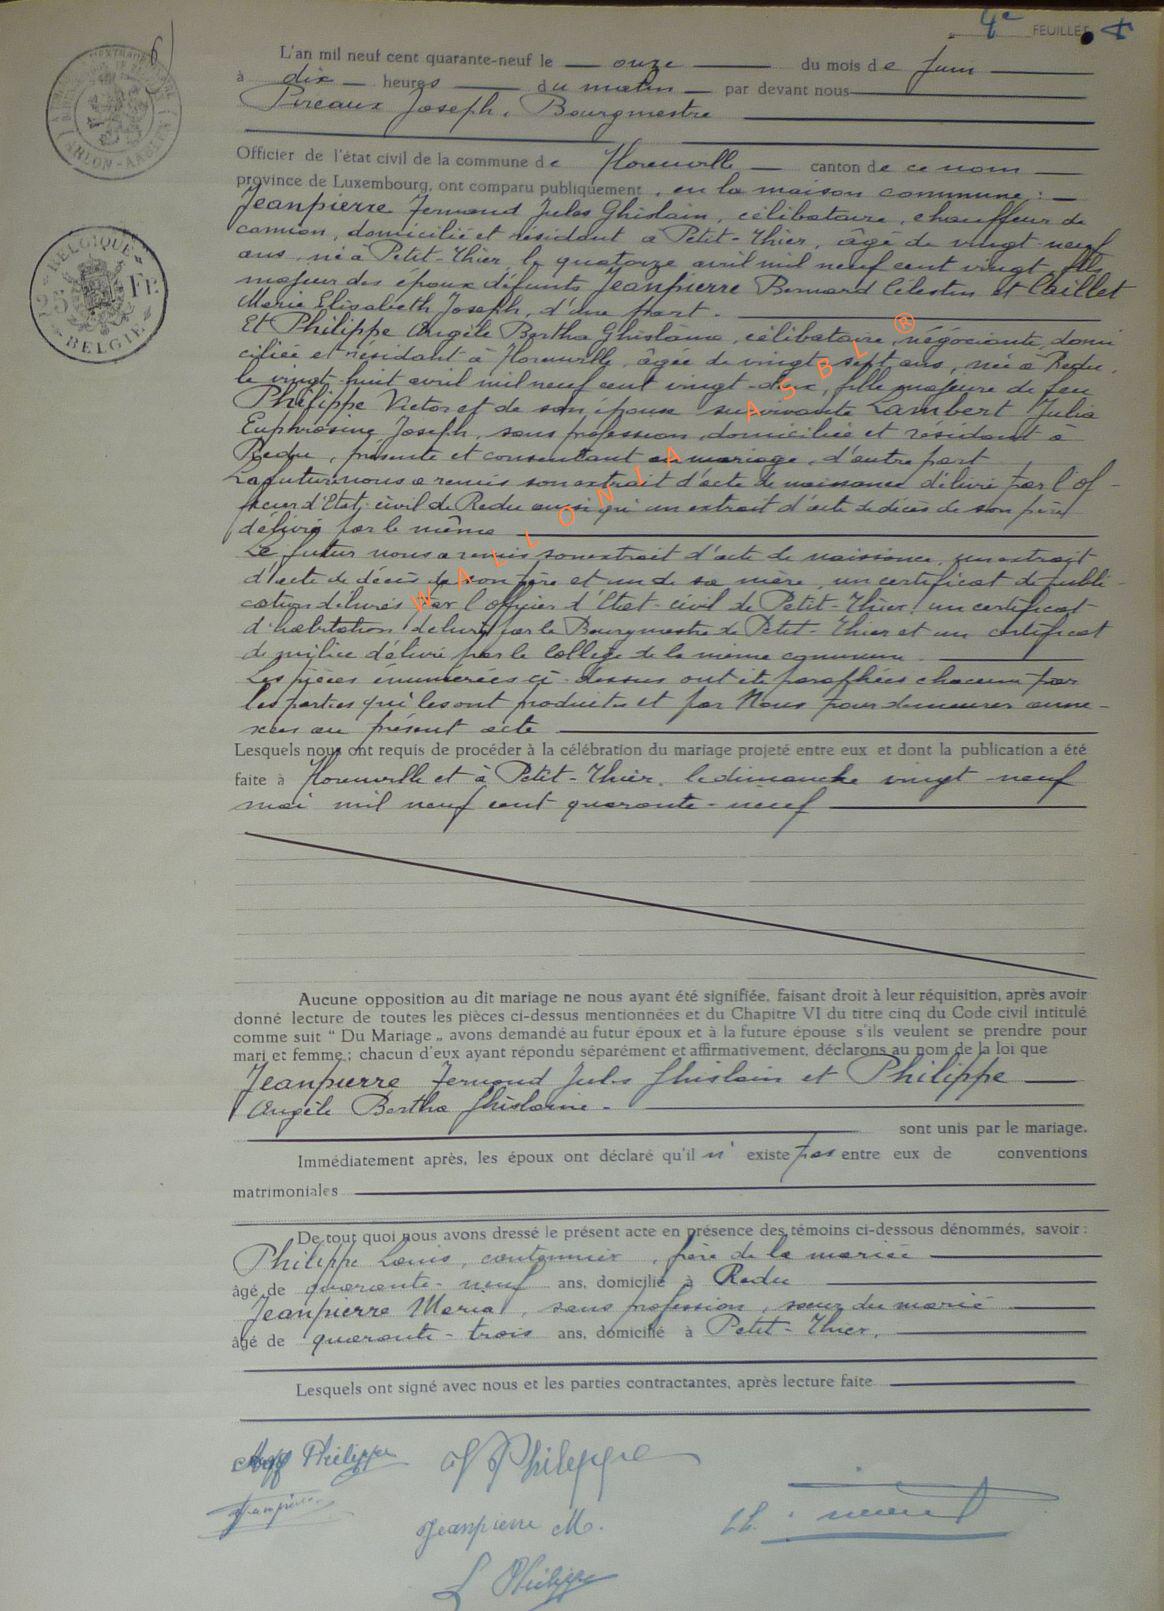 4e FEUILLET
6
L'an mil neuf cent quarante-neuf le onze du mois de Juin
à dix heures du matin par devant nous
Pireaux Joseph, Bourgmestre
Officier de l'état civil de la commune de canton de ce nom
province de Luxembourg, ont comparu publiquement, en la maison commune :
Jeanpierre Fernand Jules Ghislain, célibataire, chauffeur de
camion, domicilié et résidant à Petit-Thier, âgé de vingt-neuf
ans, né à Petit-Thier, le quatorze avril mil neuf cent vingt, fils
majeur des époux défunts Jeanpierre Bernard Célestin et Caillet
Marie Elisabeth Joseph, d'une part.
Et Philippe Angèle Bertha Ghislaine, célibataire, négociante, domi
ciliée et résidant à âgée de vingt-sept ans, née à Redu,
le vingt-huit avril mil neuf cent vingt-deux, fille majeure de feu
Philippe Victor et de son épouse survivante Lambert Julia
Euphrosine Joseph, sans profession, domiciliée et résidant à
Redu, présente et consentant au mariage, d'autre part
La future nous a remis son extrait d'acte de naissance délivré par l'of-
ficier d'Etat-civil de Redu ainsi qu'un extrait d'acte de décès de son père
délivré par le même
Le futur nous a remis son extrait d'acte de naissance, un extrait
d'acte de décès de son père et un de sa mère, un certificat de publi-
cation délivrés par l'officier d'Etat-civil de Petit-Thier, un certificat
d'habitation délivré par le Bourgmestre de Petit-Thier et un certificat
de milice délivré par le Collège de la même commune
Les pièces énumérées ci-dessus ont été paraphées chacune par
les parties qui les ont produites et par Nous pour demeurer anne-
xées au présent acte
Lesquels nous ont requis de procéder à la célébration du mariage projeté entre eux et dont la publication a été
faite à et à Petit-Thier, le dimanche vingt-neuf
mai mil neuf cent quarante-neuf
Aucune opposition au dit mariage ne nous ayant été signifiée, faisant droit à leur réquisition, après avoir
donné lecture de toutes les pièces ci-dessus mentionnées et du Chapitre VI du titre cinq du Code civil intitulé
comme suit " Du Mariage „ avons demandé au futur époux et à la future épouse s'ils veulent se prendre pour
mari et femme ; chacun d'eux ayant répondu séparément et affirmativement, déclarons au nom de la loi que
Jeanpierre Fernand Jules Ghislain et Philippe
Angèle Bertha Ghislaine.
sont unis par le mariage.
Immédiatement après, les époux ont déclaré qu'il n' existe pas entre eux de conventions
matrimoniales
De tout quoi nous avons dressé le présent acte en présence des témoins ci-dessous dénommés, savoir :
Philippe Louis, cantonnier, frère de la mariée
âgé de quarante-neuf ans, domicilié à Redu
Jeanpierre Maria, sans profession, sœur du marié
âgé de quarante-trois ans, domicilié à Petit-Thier.
Lesquels ont signé avec nous et les parties contractantes, après lecture faite
Ang Philippe
Philippe
Jeanpierre
Jeanpierre M.
L Philippe
BELGIQUE
5 Fr.
BELGIË
ARLON-
WALLONIA ASBL ®